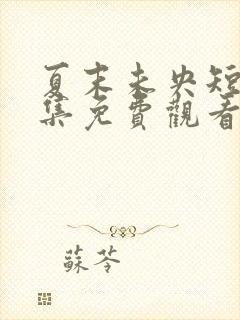 夏末未央短
集免費觀看
蘇苓